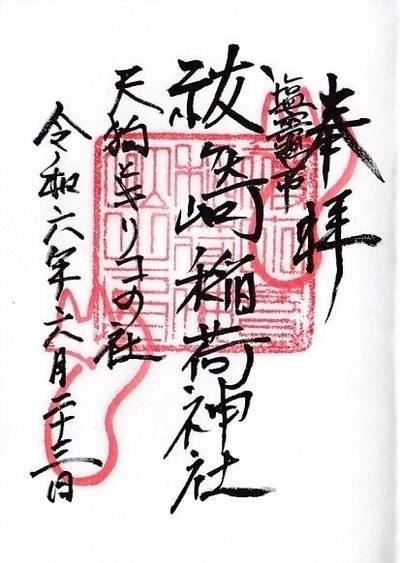 奉拝
塩竈市
祓ヶ崎稲荷神社
天狗とキリコの社
令和六年六月二十三日